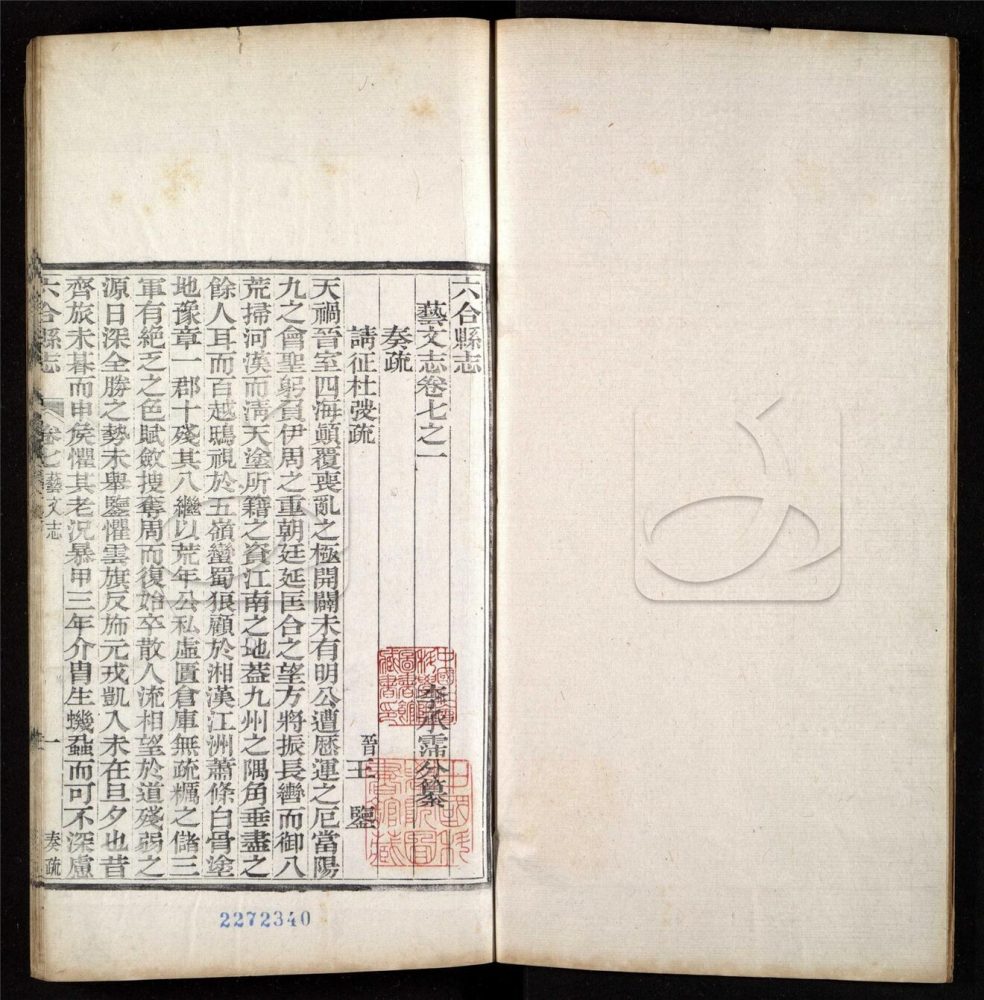 六合縣志
藝文志卷七之一
李承霈分纂
奏疏
請征杜弢疏
晉王 鑒
天禍晉室四海顛覆喪亂之極開闢未有明公遭歷運之厄當陽
九之會聖躬負伊周之重朝廷延匡合之望方將振長轡而御八
荒掃河漢而淸天塗所籍之資江南之地葢九州之隅角垂盡之
餘人耳而百越鴟視於五嶺蠻蜀狼顧於湘漢江洲蕭條白骨塗
地豫章一郡十殘其八繼以荒年公私虛匱倉庫無疏糲之儲三
軍有絕乏之色賦斂搜奪周而復始卒散人流相望於道殘弱之
源日深全勝之勢未舉鑒懼雲旗反斾元戎凱入未在旦夕也昔
齊旅未朞而申侯懼其老況暴甲三年介胄生蟣蝨而可不深慮
六合縣志
卷七藝文志
一
奏疏
2272340